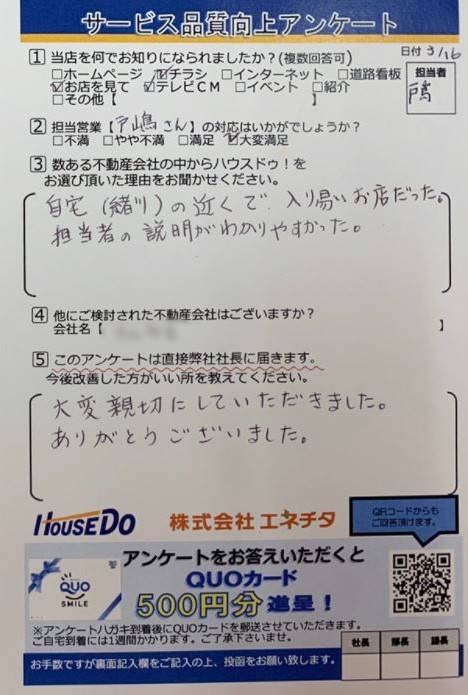 サービス品質向上アンケート
1 当店を何でお知りになられましたか？(複数回答可)
日付 3/16
□ホームページ ☑チラシ □インターネット □道路看板
☑お店を見て ☑テレビCM □イベント □紹介
□その他【 】
担当者
戸嶋
2 担当営業【戸嶋さん】の対応はいかがでしょうか？
□不満 □やや不満 □満足 ☑大変満足
3 数ある不動産会社の中からハウスドゥ！を
お選び頂いた理由をお聞かせください。
自宅(緒川)の近くで、入り易いお店だった。
担当者の説明がわかりやすかった。
4 他にご検討された不動産会社はございますか？
会社名【 】
5 このアンケートは直接弊社社長に届きます。
今後改善した方がいい所を教えてください。
大変親切にしていただきました。
ありがとうございました。
HOUSEDO 株式会社 エネチタ
QRコードからも
ご回答頂けます。
QUO
SMILE
アンケートをお答えいただくと
QUOカード
500円分進呈！
※アンケートハガキ到着後にQUOカードを郵送させていただきます。
ご自宅到着には1週間かかります。ご了承下さいませ。
お手数ですが裏面記入欄をご記入の上、投函をお願い致します。
社長 部長 課長